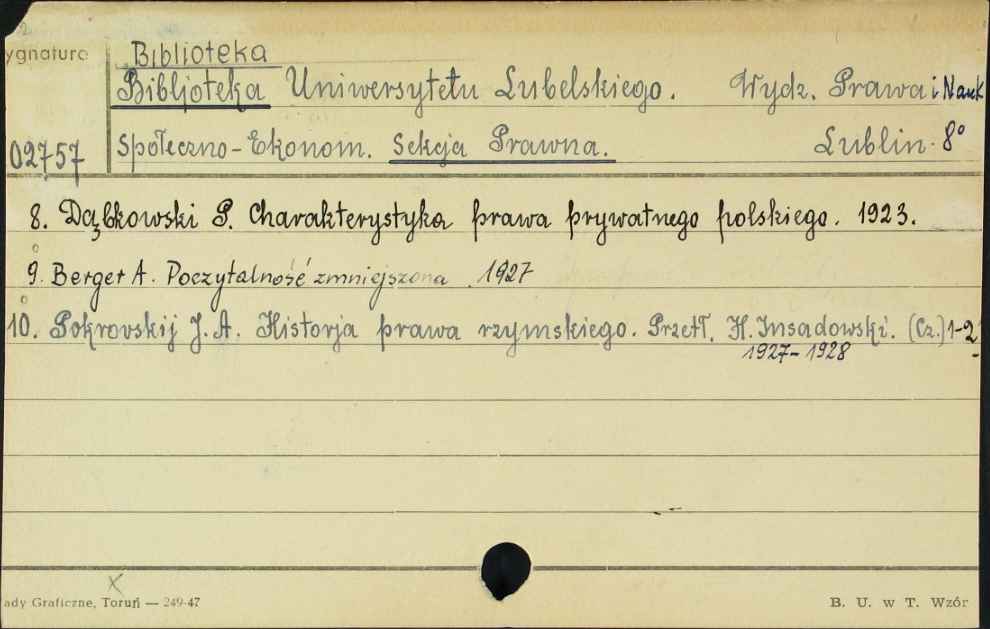 ygnatura
Biblioteka
Bibljoteka Uniwersytetu Lubelskiego. Wydz. Prawa i Nauk
02757 Społeczno-Ekonom. Sekcja Prawna. Lublin. 8°
8. Dąbkowski P. Charakterystyka prawa prywatnego polskiego. 1923.
9. Berger A. Poczytalność zmniejszona. 1927
10. Pokrovskij J. A. Historja prawa rzymskiego. Przetł. H. Insadowski. (Cz.) 1-2
1927-1928
ady Graficzne, Toruń — 249-47
B. U. w T. Wzór